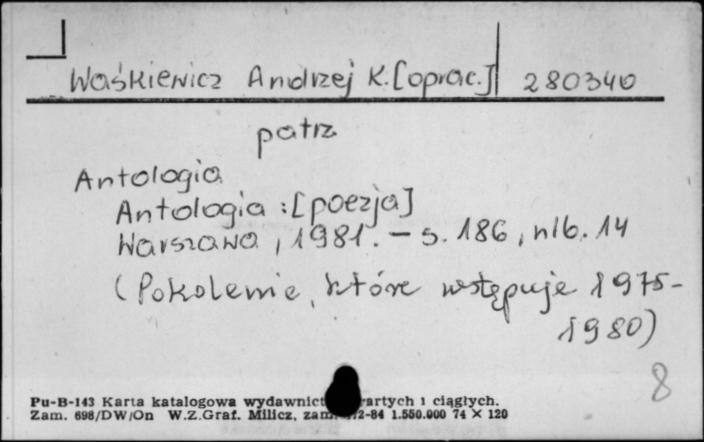 Waśkiewicz Andrzej K. [oprac.] 280340
patrz
Antologia
Antologia : [poezja]
Warszawa, 1981. - s. 186, nlb. 14
(Pokolenie, które wstępuje 1975-
1980)
8
Pu-B-143 Karta katalogowa wydawnict i ciągłych.
Zam. 698/DW/On W.Z.Graf. Milicz, zam. 2-84 1.550.000 74 × 120